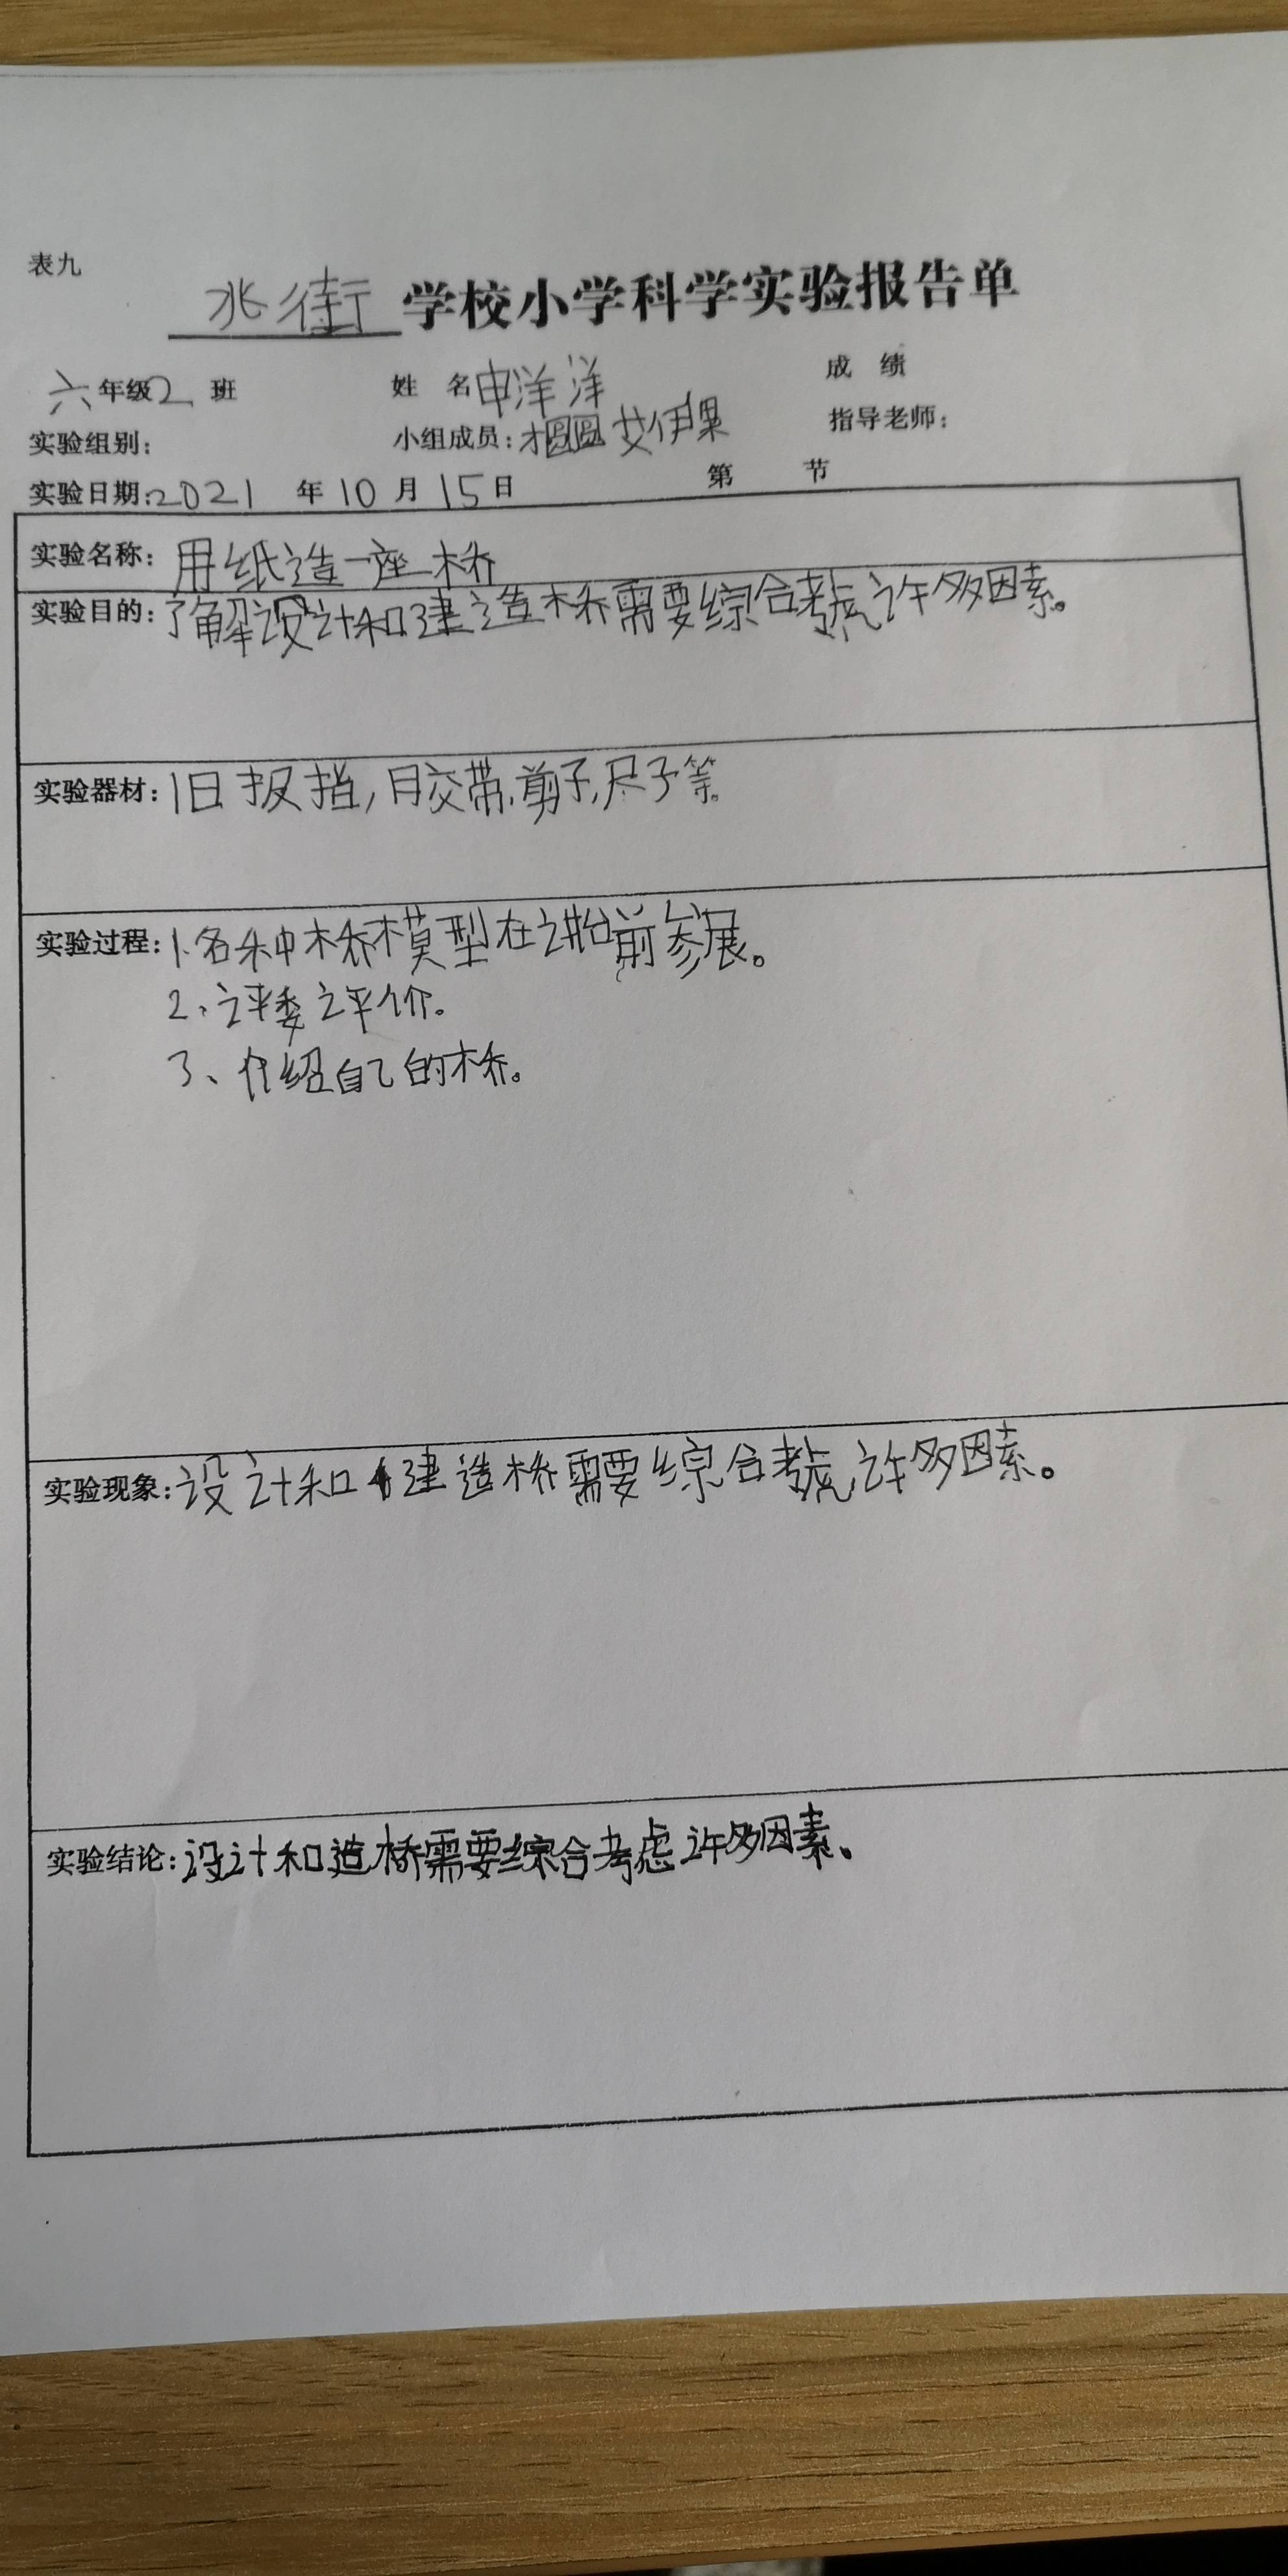 表九
兆街学校小学科学实验报告单
六年级2班 姓 名申洋洋 成 绩
实验组别: 小组成员:圆圆 艾伊果 指导老师:
实验日期:2021 年10月15日 第 节
实验名称:用纸造一座桥
实验目的:了解设计和建造桥需要综合考虑许多因素。
实验器材:旧报挡,胶带,剪子,尺子等。
实验过程:1.各种桥模型在讲台前参展。
2、评委评价。
3、介绍自己的桥。
实验现象:设计和建造桥需要综合考虑许多因素。
实验结论:设计和造桥需要综合考虑许多因素、